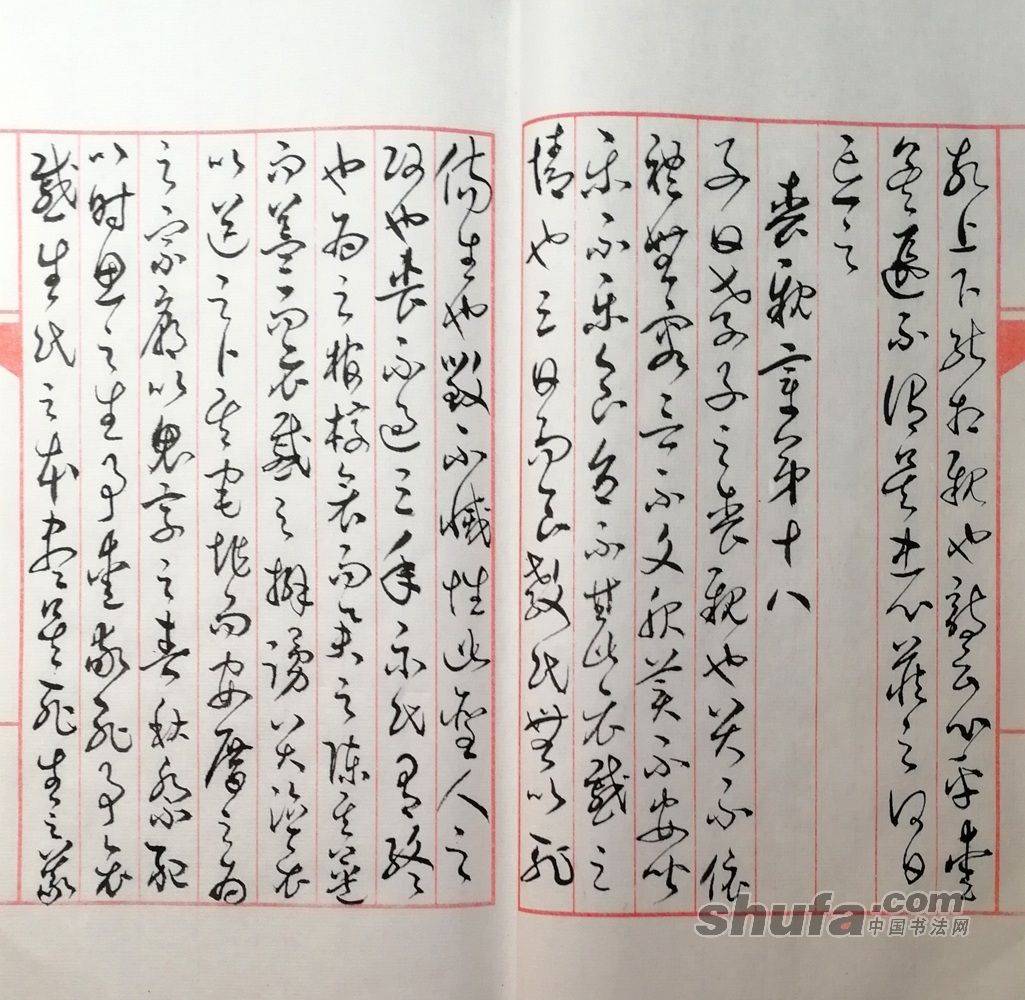 故上下能相親也詩云心乎愛
矣遐不謂矣中心藏之何日
忘之
喪親章第十八
子曰孝子之喪親也哭不偯
禮無容言不文服美不安聞
樂不樂食旨不甘此哀慼之
情也三日而食教民無以死
傷生也毀不滅性此聖人之
政也喪不過三年示民有終
也為之棺椁衣而舉之陳其簠
簋而哀慼之擗踴哭泣哀
以送之卜其宅兆而安厝之為
之宗廟以鬼享之春秋祭祀
以時思之生事愛敬死事哀
慼生民之本盡矣死生之義
shufa.com
中国书法网